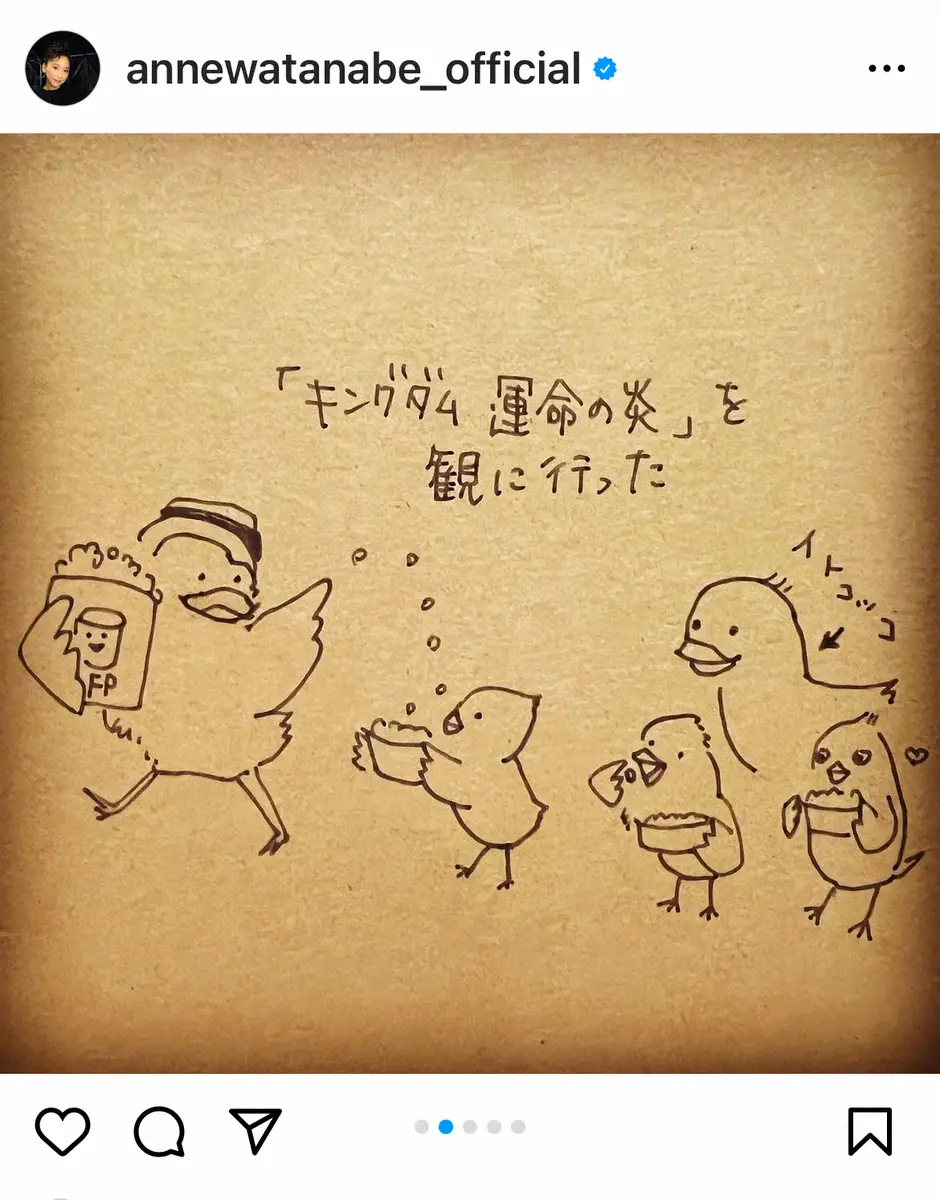 annewatanabe_official
「キングダム 運命の炎」を
観に行った
イトコッコ
FP